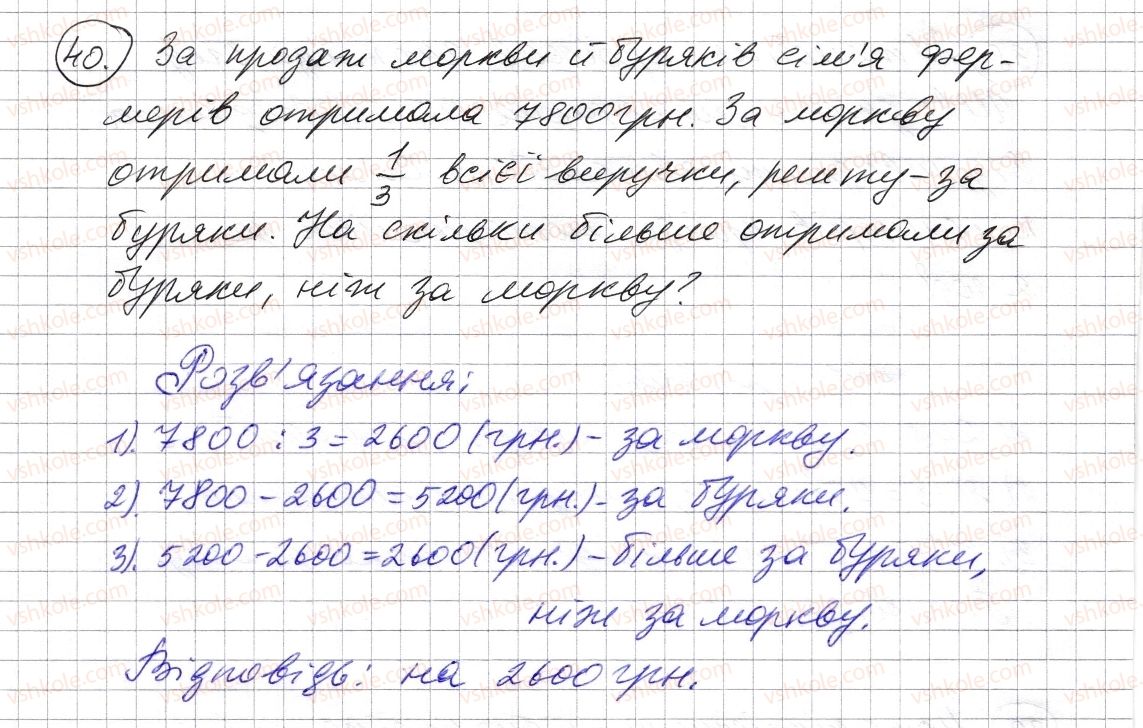 40. За продаж моркви й буряків сім'я фер-
мерів отримала 7800грн. За моркву
отримали 1/3 всієї виручки, решту – за
буряки. На скільки більше отримали за
буряки, ніж за моркву?
Розв'язання:
1). 7800 : 3 = 2600 (грн.) – за моркву.
2). 7800 – 2600 = 5200 (грн.) – за буряки.
3). 5200 – 2600 = 2600 (грн.) – більше за буряки,
ніж за моркву.
Відповідь: на 2600 грн.